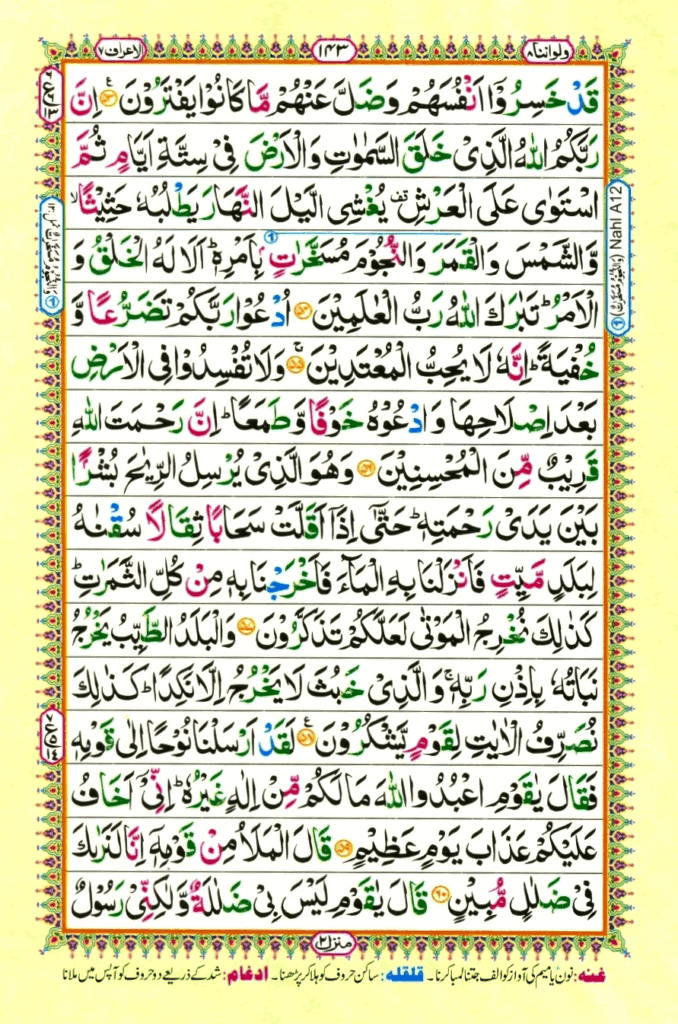 ولواننا ۸
۱۴۳
الاعراف ۷
قَدْ خَسِرُوْۤا اَنْفُسَهُمْ وَضَلَّ عَنْهُمْ مَّا كَانُوْا يَفْتَرُوْنَ ﴿۵۳﴾ اِنَّ
رَبَّكُمُ اللّٰهُ الَّذِىْ خَلَقَ السَّمٰوٰتِ وَالْاَرْضَ فِىْ سِتَّةِ اَيَّامٍ ثُمَّ
اسْتَوٰى عَلَى الْعَرْشِ ۫ يُغْشِى الَّيْلَ النَّهَارَ يَطْلُبُهٗ حَثِيْثًا ۙ
وَّالشَّمْسَ وَالْقَمَرَ وَالنُّجُوْمَ مُسَخَّرٰتٍۭ بِاَمْرِهٖ ؕ اَلَا لَهُ الْخَلْقُ وَ
الْاَمْرُ ؕ تَبٰرَكَ اللّٰهُ رَبُّ الْعٰلَمِيْنَ ﴿۵۴﴾ اُدْعُوْا رَبَّكُمْ تَضَرُّعًا وَّ
خُفْيَةً ؕ اِنَّهٗ لَا يُحِبُّ الْمُعْتَدِيْنَ ﴿۵۵﴾ وَلَا تُفْسِدُوْا فِى الْاَرْضِ
بَعْدَ اِصْلَاحِهَا وَادْعُوْهُ خَوْفًا وَّطَمَعًا ؕ اِنَّ رَحْمَتَ اللّٰهِ
قَرِيْبٌ مِّنَ الْمُحْسِنِيْنَ ﴿۵۶﴾ وَهُوَ الَّذِىْ يُرْسِلُ الرِّيٰحَ بُشْرًۢا
بَيْنَ يَدَىْ رَحْمَتِهٖ ؕ حَتّٰۤى اِذَاۤ اَقَلَّتْ سَحَابًا ثِقَالًا سُقْنٰهُ
لِبَلَدٍ مَّيِّتٍ فَاَنْزَلْنَا بِهِ الْمَآءَ فَاَخْرَجْنَا بِهٖ مِنْ كُلِّ الثَّمَرٰتِ ؕ
كَذٰلِكَ نُخْرِجُ الْمَوْتٰى لَعَلَّكُمْ تَذَكَّرُوْنَ ﴿۵۷﴾ وَالْبَلَدُ الطَّيِّبُ يَخْرُجُ
نَبَاتُهٗ بِاِذْنِ رَبِّهٖ ۚ وَالَّذِىْ خَبُثَ لَا يَخْرُجُ اِلَّا نَكِدًا ؕ كَذٰلِكَ
نُصَرِّفُ الْاٰيٰتِ لِقَوْمٍ يَّشْكُرُوْنَ ﴿۵۸﴾ لَقَدْ اَرْسَلْنَا نُوْحًا اِلٰى قَوْمِهٖ
فَقَالَ يٰقَوْمِ اعْبُدُوا اللّٰهَ مَا لَكُمْ مِّنْ اِلٰهٍ غَيْرُهٗ ؕ اِنِّىْۤ اَخَافُ
عَلَيْكُمْ عَذَابَ يَوْمٍ عَظِيْمٍ ﴿۵۹﴾ قَالَ الْمَلَاُ مِنْ قَوْمِهٖۤ اِنَّا لَنَرٰكَ
فِىْ ضَلٰلٍ مُّبِيْنٍ ﴿۶۰﴾ قَالَ يٰقَوْمِ لَيْسَ بِىْ ضَلٰلَةٌ وَّلٰكِنِّىْ رَسُوْلٌ
Nahl A12
منزل ۲
غنه: نون یا میم کی آواز کو الف جتنا لمبا کرنا۔ قلقله: ساکن حروف کو ہلا کر پڑھنا۔ ادغام: شد کے ذریعے دو حروف کو آپس میں ملانا